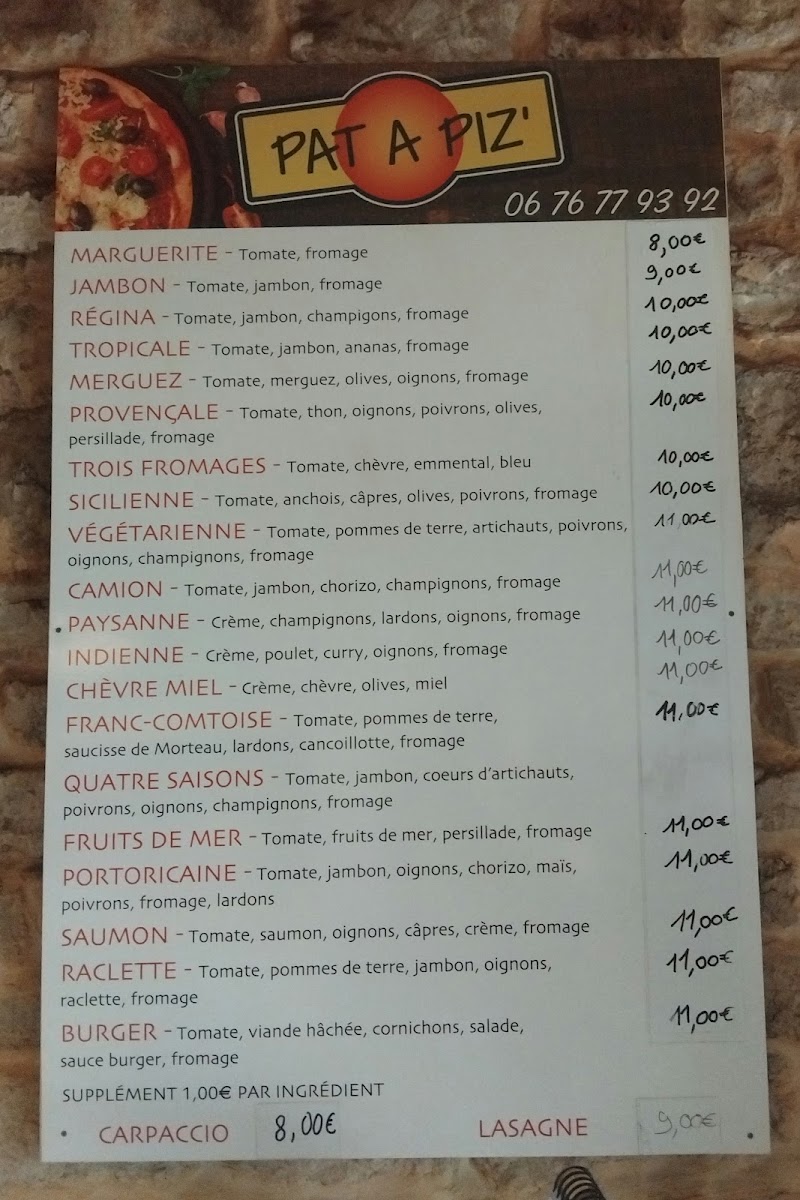 PAT A PIZ'
06 76 77 93 92
MARGUERITE - Tomate, fromage 8,00€
JAMBON - Tomate, jambon, fromage 9,00€
RÉGINA - Tomate, jambon, champigons, fromage 10,00€
TROPICALE - Tomate, jambon, ananas, fromage 10,00€
MERGUEZ - Tomate, merguez, olives, oignons, fromage 10,00€
PROVENÇALE - Tomate, thon, oignons, poivrons, olives, 10,00€
persillade, fromage
TROIS FROMAGES - Tomate, chèvre, emmental, bleu 10,00€
SICILIENNE - Tomate, anchois, câpres, olives, poivrons, fromage 10,00€
VÉGÉTARIENNE - Tomate, pommes de terre, artichauts, poivrons, 11,00€
oignons, champignons, fromage
CAMION - Tomate, jambon, chorizo, champignons, fromage 11,00€
PAYSANNE - Crème, champignons, lardons, oignons, fromage 11,00€
INDIENNE - Crème, poulet, curry, oignons, fromage 11,00€
CHÈVRE MIEL - Crème, chèvre, olives, miel 11,00€
FRANC-COMTOISE - Tomate, pommes de terre, 11,00€
saucisse de Morteau, lardons, cancoillotte, fromage
QUATRE SAISONS - Tomate, jambon, coeurs d'artichauts,
poivrons, oignons, champignons, fromage
FRUITS DE MER - Tomate, fruits de mer, persillade, fromage 11,00€
PORTORICAINE - Tomate, jambon, oignons, chorizo, maïs, 11,00€
poivrons, fromage, lardons
SAUMON - Tomate, saumon, oignons, câpres, crème, fromage 11,00€
RACLETTE - Tomate, pommes de terre, jambon, oignons, 11,00€
raclette, fromage
BURGER - Tomate, viande hâchée, cornichons, salade, 11,00€
sauce burger, fromage
SUPPLÉMENT 1,00€ PAR INGRÉDIENT
CARPACCIO 8,00€ LASAGNE 9,00€